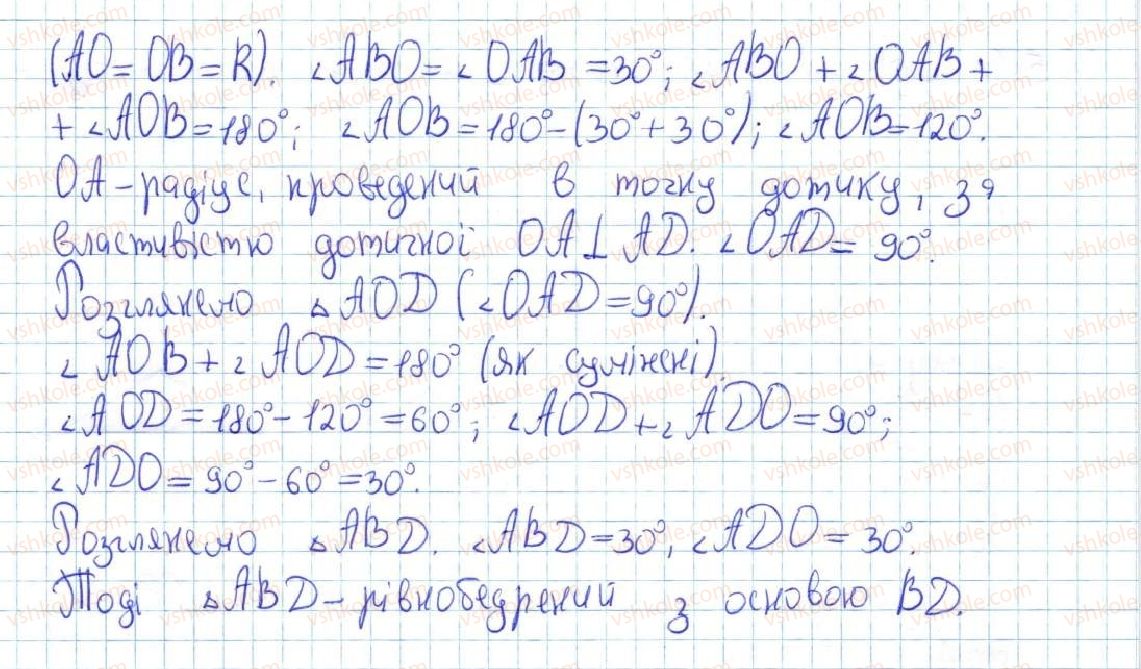 (AO = OB = R). ∠ABO = ∠OAB = 30°; ∠ABO + ∠OAB +
+ ∠AOB = 180°; ∠AOB = 180° - (30° + 30°); ∠AOB = 120°.
OA - радіус, проведений в точку дотику, за
властивістю дотичної OA ⊥ AD. ∠OAD = 90°.
Розглянемо △AOD (∠OAD = 90°).
∠AOB + ∠AOD = 180° (як суміжні).
∠AOD = 180° - 120° = 60°; ∠AOD + ∠ADO = 90°;
∠ADO = 90° - 60° = 30°.
Розглянемо △ABD. ∠ABD = 30°, ∠ADO = 30°.
Тоді △ABD - рівнобедрений з основою BD.